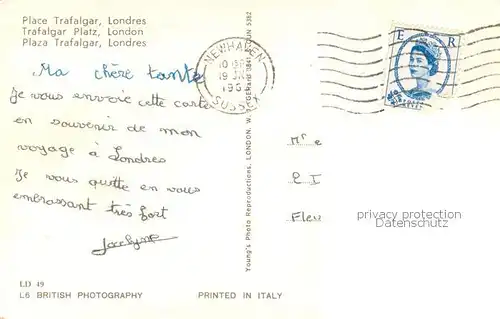 Place Trafalgar, Londres
Trafalgar Platz, London
Plaza Trafalgar, Londres
NEWHAVEN
19
196
SUSSEX
E R
Ma chère tante
Je vous envoie cette carte
en souvenir de mon
voyage à Londres
Je vous quitte en vous
embrassant très fort
Jocelyne
Young's Photo Reproductions, LONDON, W.
Mr e
Fleu
privacy protection
Datenschutz
LD 49
L6 BRITISH PHOTOGRAPHY
PRINTED IN ITALY